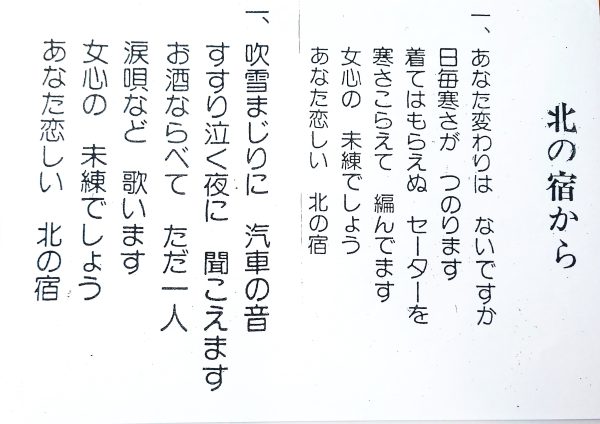 北の宿から
一、あなた変わりは　ないですか
日毎寒さが　つのります
着てはもらえぬ　セーターを
寒さこらえて　編んでます
女心の　未練でしょう
あなた恋しい　北の宿
一、吹雪まじりに　汽車の音
すすり泣く夜に　聞こえます
お酒ならべて　ただ一人
涙唄など　歌います
女心の　未練でしょう
あなた恋しい　北の宿